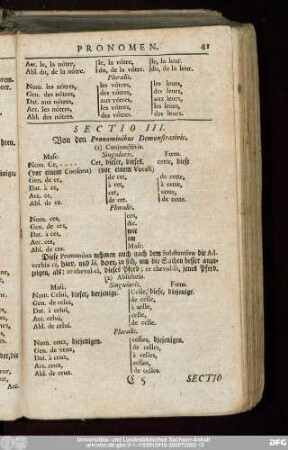 PRONOMEN. 41
Acc. le, la nôtre, le, la vôtre, le, la leur.
Abl. du, de la nôtre. du, de la vôtre. du, de la leur.
Pluralis.
Nom. les nôtres, les vôtres, les leurs,
Gen. des nôtres, des vôtres, des leurs,
Dat. aux nôtres, aux vôtres, aux leurs,
Acc. les nôtres, les vôtres, les leurs,
Abl. des nôtres. des vôtres. des leurs.
SECTIO III.
Von den Pronominibus Demonstrativis.
(1) Conjunctivis.
Masc. Singularis. Fœm.
Nom. Ce, . . . . Cet, dieser, dieses. cette, diese
(vor einem Consona) (vor einem Vocal)
Gen. de ce, de cet, de cette,
Dat. à ce, à cet, à cette,
Acc. ce, cet, cette,
Abl. de ce. de cet. de cette.
Pluralis.
Nom. ces, ces,
Gen. de ces, etc.
Dat. à ces, wie
Acc. ces, im
Abl. de ces. Masc.
Diese Pronomina nehmen auch nach dem Substantivo die Ad-
verbia ci, hier, und là, dort, zu sich, um die Sachen besser anzu-
zeigen, als: ce cheval-ci, dieses Pferd, ce cheval-là, jenes Pferd.
(2) Absolutis.
Masc. Singularis. Fœm.
Nom. Celui, dieser, derjenige. Celle, diese, diejenige.
Gen. de celui, de celle,
Dat. à celui, à celle,
Acc. celui, celle,
Abl. de celui. de celle.
Pluralis.
Nom. ceux, diejenigen. celles, diejenigen.
Gen. de ceux, de celles,
Dat. à ceux, à celles,
Acc. ceux, celles,
Abl. de ceux. de celles.
C 5 SECTIO
Universitäts- und Landesbibliothek Sachsen-Anhalt
DFG